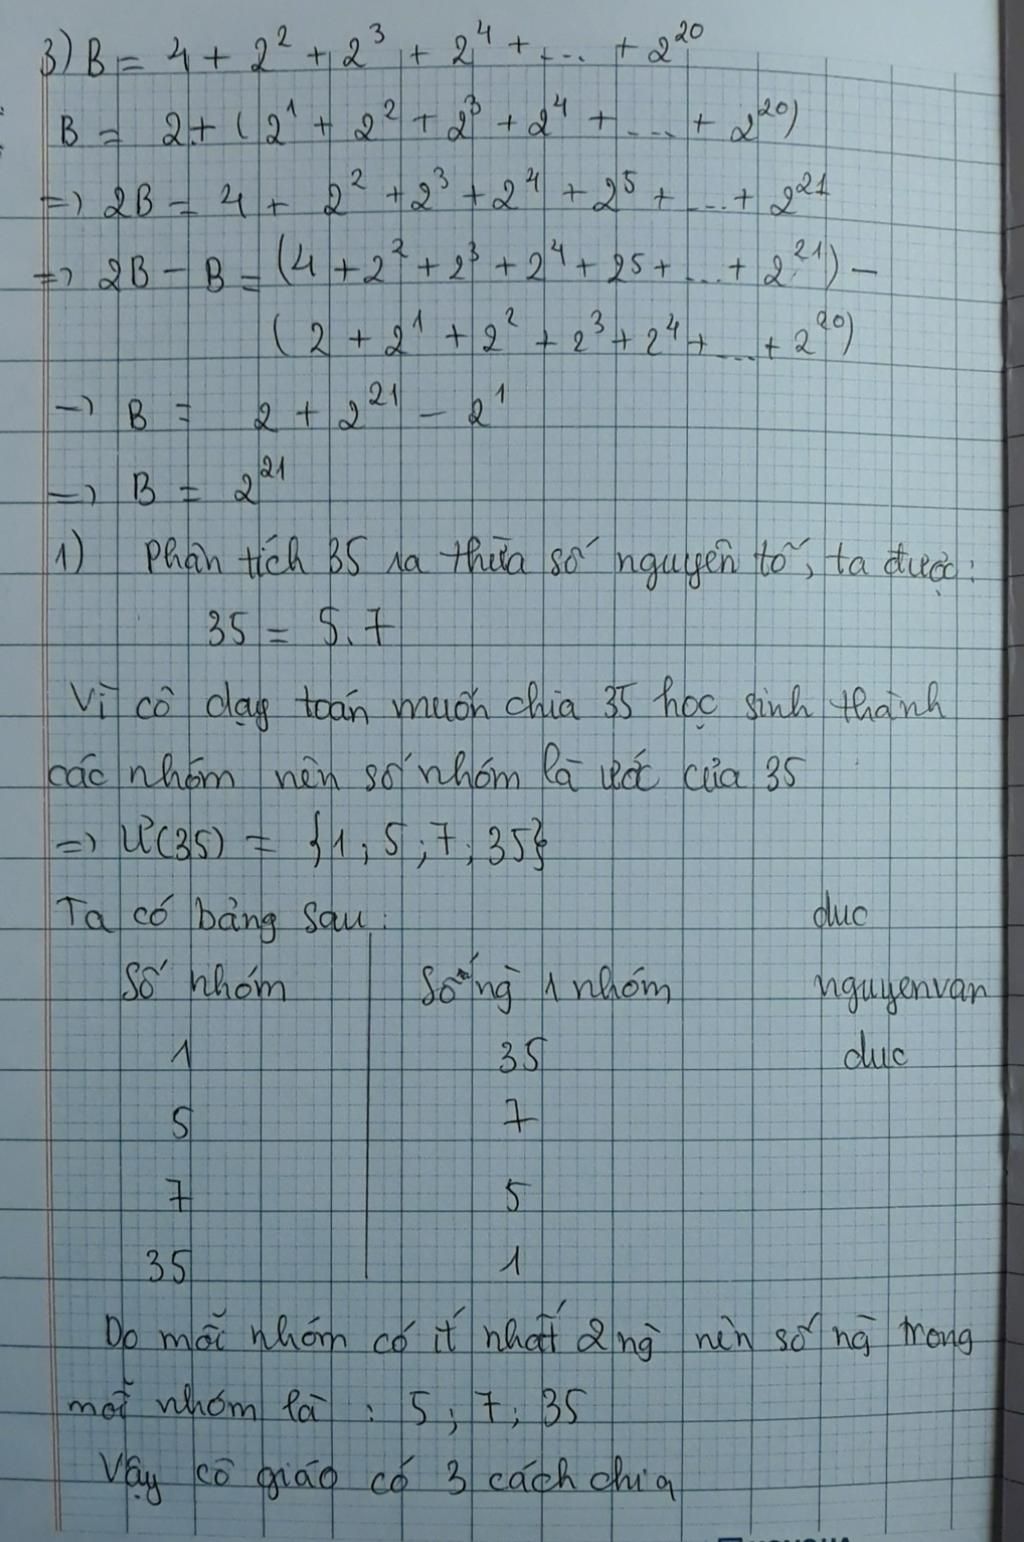 3) B = 4 + 2² + 2³ + 2⁴ + ... + 2²⁰
B = 2 + (2¹ + 2² + 2³ + 2⁴ + ... + 2²⁰)
=> 2B = 4 + 2² + 2³ + 2⁴ + 2⁵ + ... + 2²¹
=> 2B - B = (4 + 2² + 2³ + 2⁴ + 25 + ... + 2²¹) -
(2 + 2¹ + 2² + 2³ + 2⁴ + ... + 2²⁰)
=> B = 2 + 2²¹ - 2¹
=> B = 2²¹
1) Phân tích 35 ra thừa số nguyên tố, ta được:
35 = 5.7
Vì cô dạy toán muốn chia 35 học sinh thành
các nhóm nên số nhóm là ước của 35
=> Ư(35) = {1; 5; 7; 35}
Ta có bảng sau: duc
Số nhóm Số ng 1 nhóm nguyenvan
1 35 duc
5 7
7 5
35 1
Do mỗi nhóm có ít nhất 2 ng nên số ng trong
mỗi nhóm là : 5; 7; 35
Vậy cô giáo có 3 cách chia